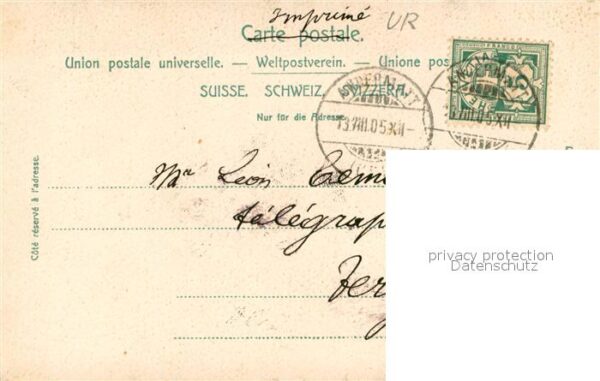 Imprimé UR
Carte postale.
Union postale universelle. — Weltpostverein. — Unione pos
SUISSE. SCHWEIZ. SVIZZERA.
Nur für die Adresse.
ANDERMATT
13.VIII.05.XII-
FRANCO
Côté réservé à l'adresse.
Mr Léon
télégrap
privacy protection
Datenschutz